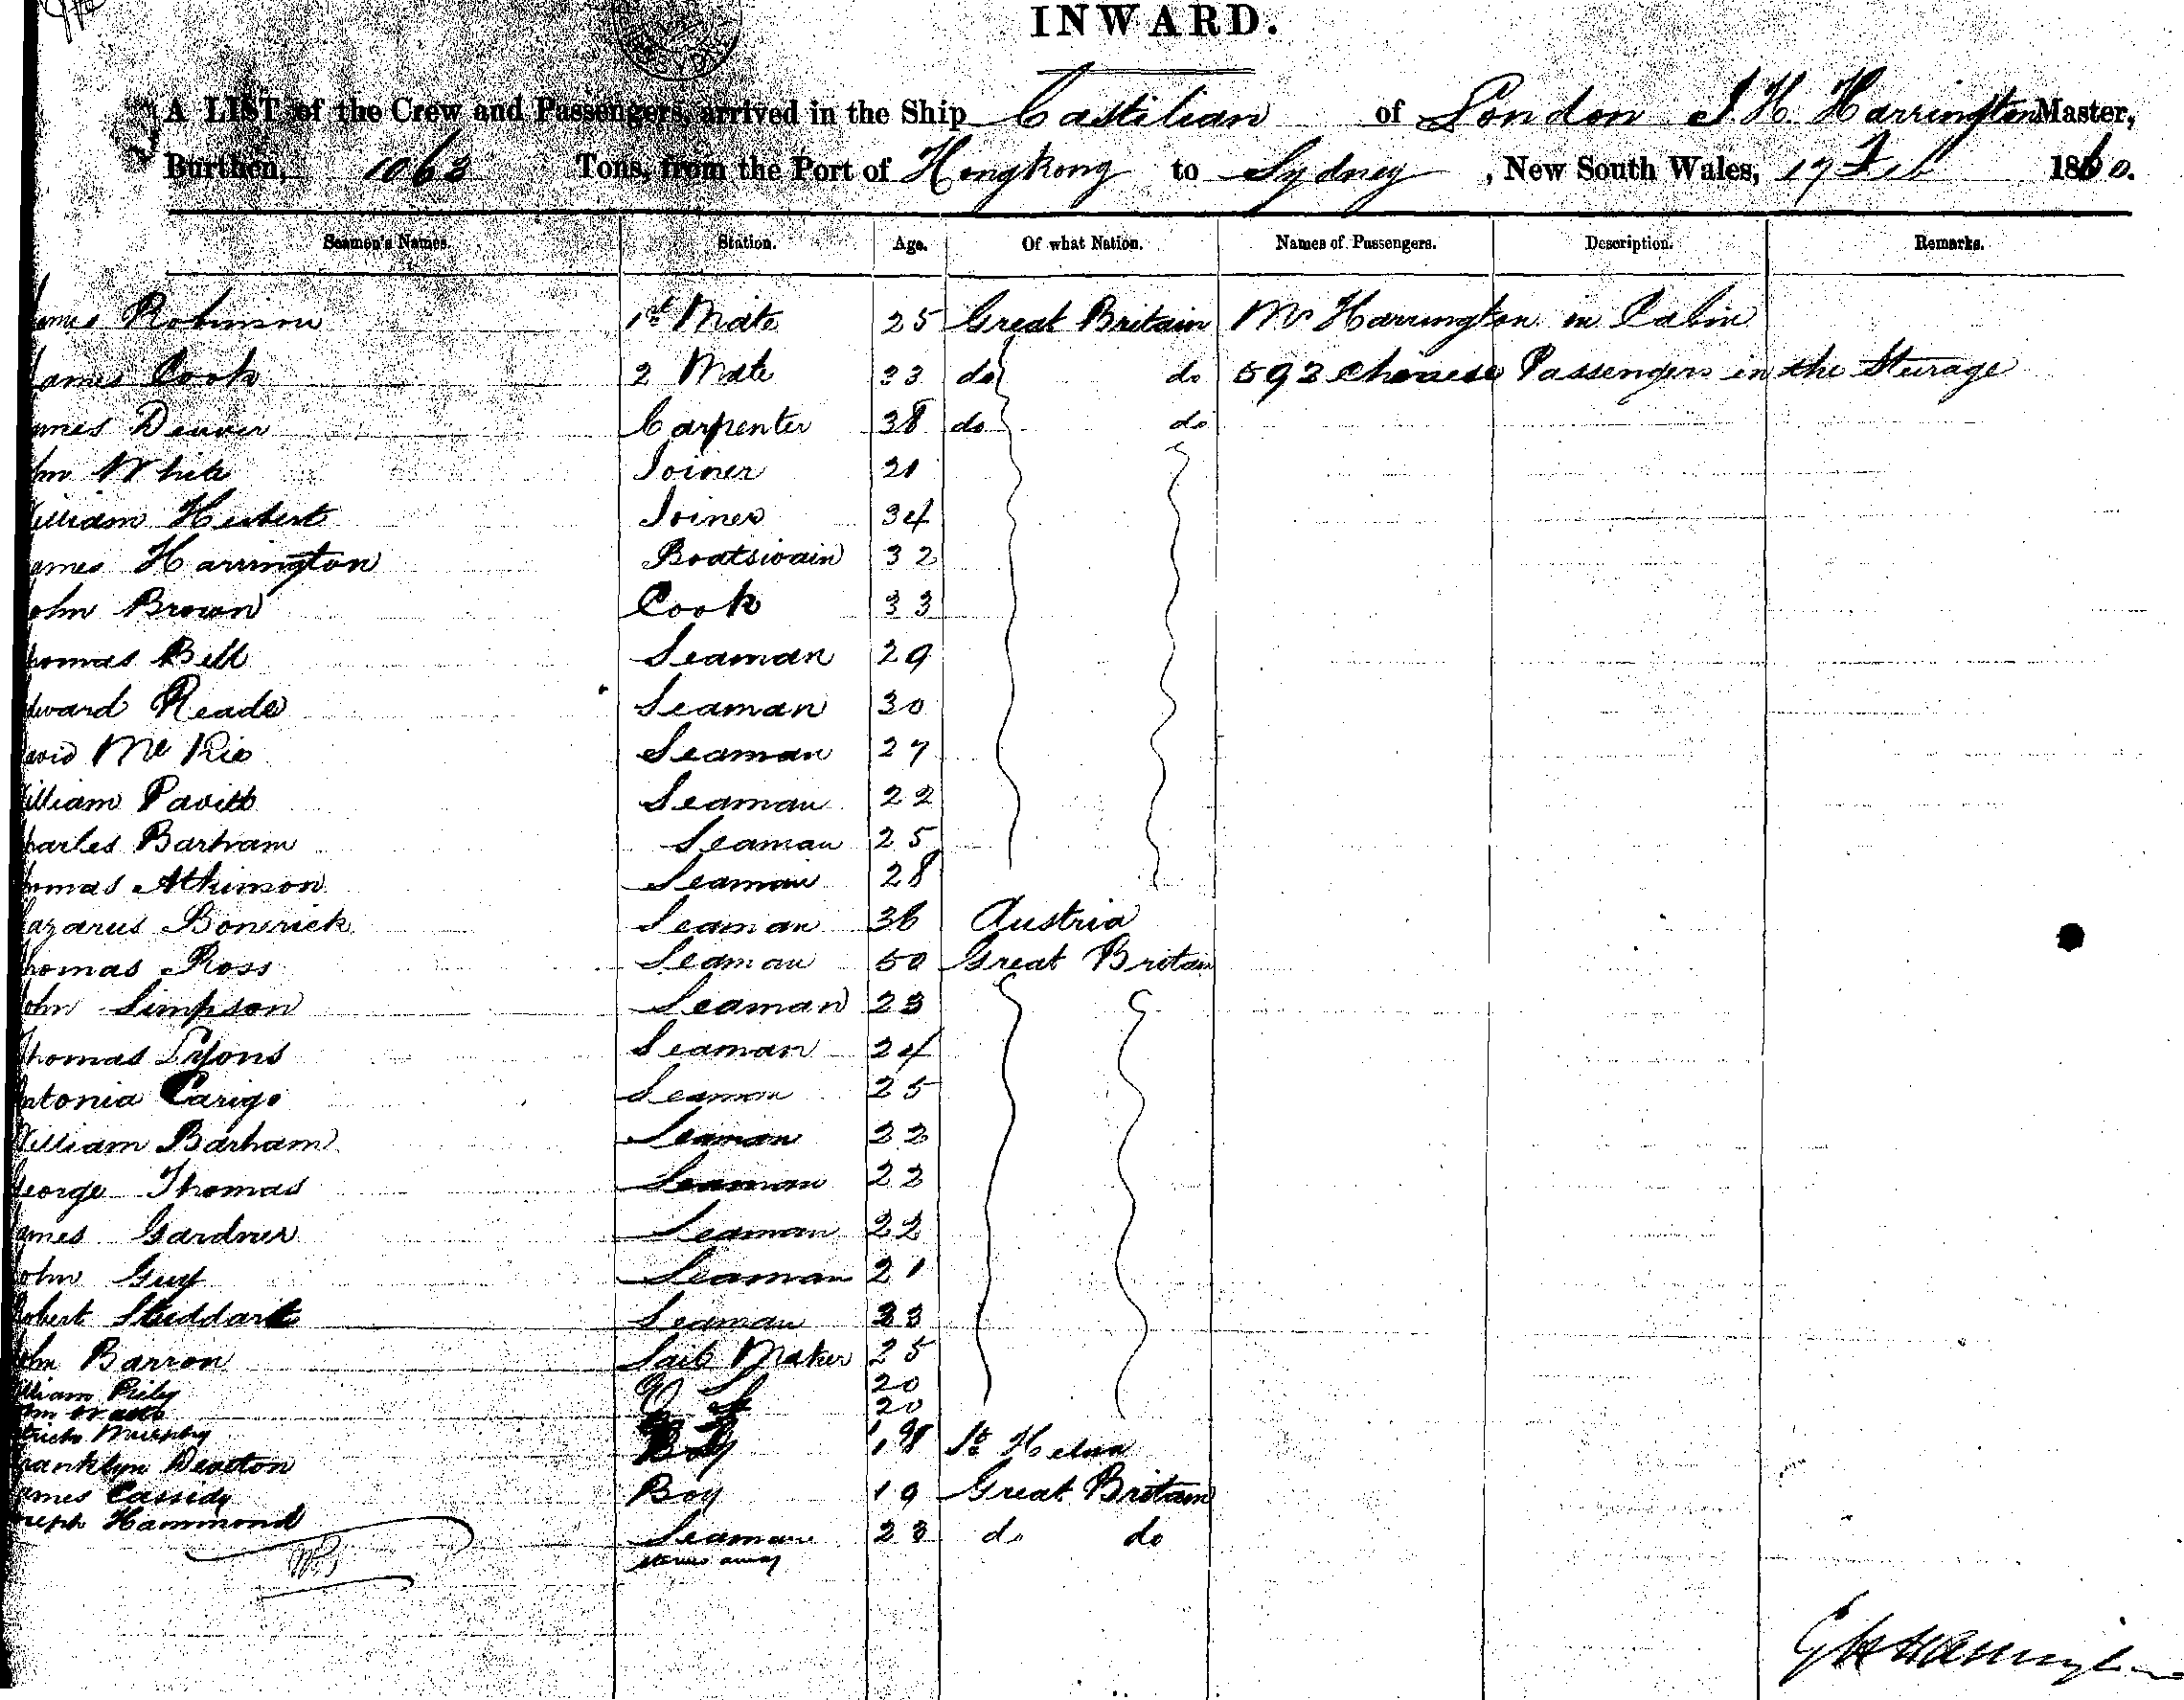 INWARD.
A LIST of the Crew and Passengers, arrived in the Ship Castilian of London J H Harrington Master,
Burthen, 1063 Tons, from the Port of Hongkong to Sydney, New South Wales, 17 Feb 1860.
Seamen's Names. Station. Age. Of what Nation. Names of Passengers. Description. Remarks.
James Robinson 1st Mate 25 Great Britain Mr Harrington in Cabin
James Cook 2 Mate 33 do do 593 Chinese Passengers in the Sturage
James Denver Carpenter 38 do do
John White Joiner 21
William Herbert Joiner 34
James Harrington Boatswain 32
John Brown Cook 33
Thomas Bell Seaman 29
Edward Reade Seaman 30
David Mc Kie Seaman 27
William Pavitt Seaman 22
Charles Barham Seaman 25
Thomas Atkinson Seaman 28
Lazarus Bonsrick Seaman 36 Austria
Thomas Ross Seaman 50 Great Britain
John Simpson Seaman 23
Thomas Lyons Seaman 24
Antonia Carigo Seaman 25
William Barham Seaman 22
George Thomas Seaman 22
James Gardner Seaman 22
John Guy Seaman 21
Robert Studdart Seaman 33
John Barron Sail Maker 25
William Riley 20
John 20
Murphy Boy 18 St Helena
Franklyn Deaton
James Cassidy Boy 19 Great Britain
Joseph Hammond Seaman 23 do do
away
J H Harrington